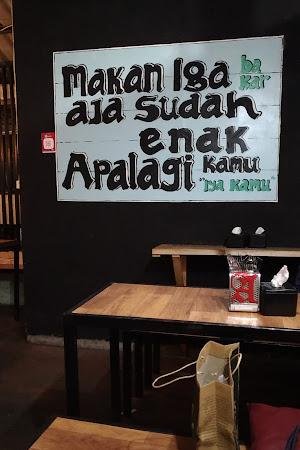 Makan Iga ba kar
aja sudah
enak
Apalagi kamu
"iya kamu"